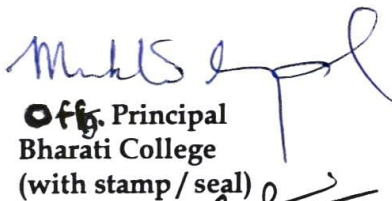 Offg. Principal
Bharati College
(with stamp / seal)